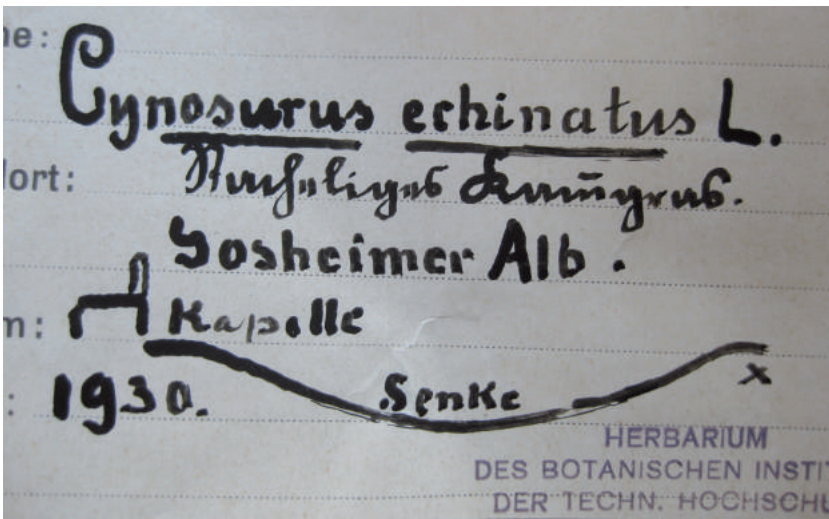 me:
Cynosurus echinatus L.
dort:
Stacheliges Kammgras.
Gosheimer Alb.
m: Kapelle
: 1930. Senke x
HERBARIUM
DES BOTANISCHEN INSTI
DER TECHN. HOCHSCHU